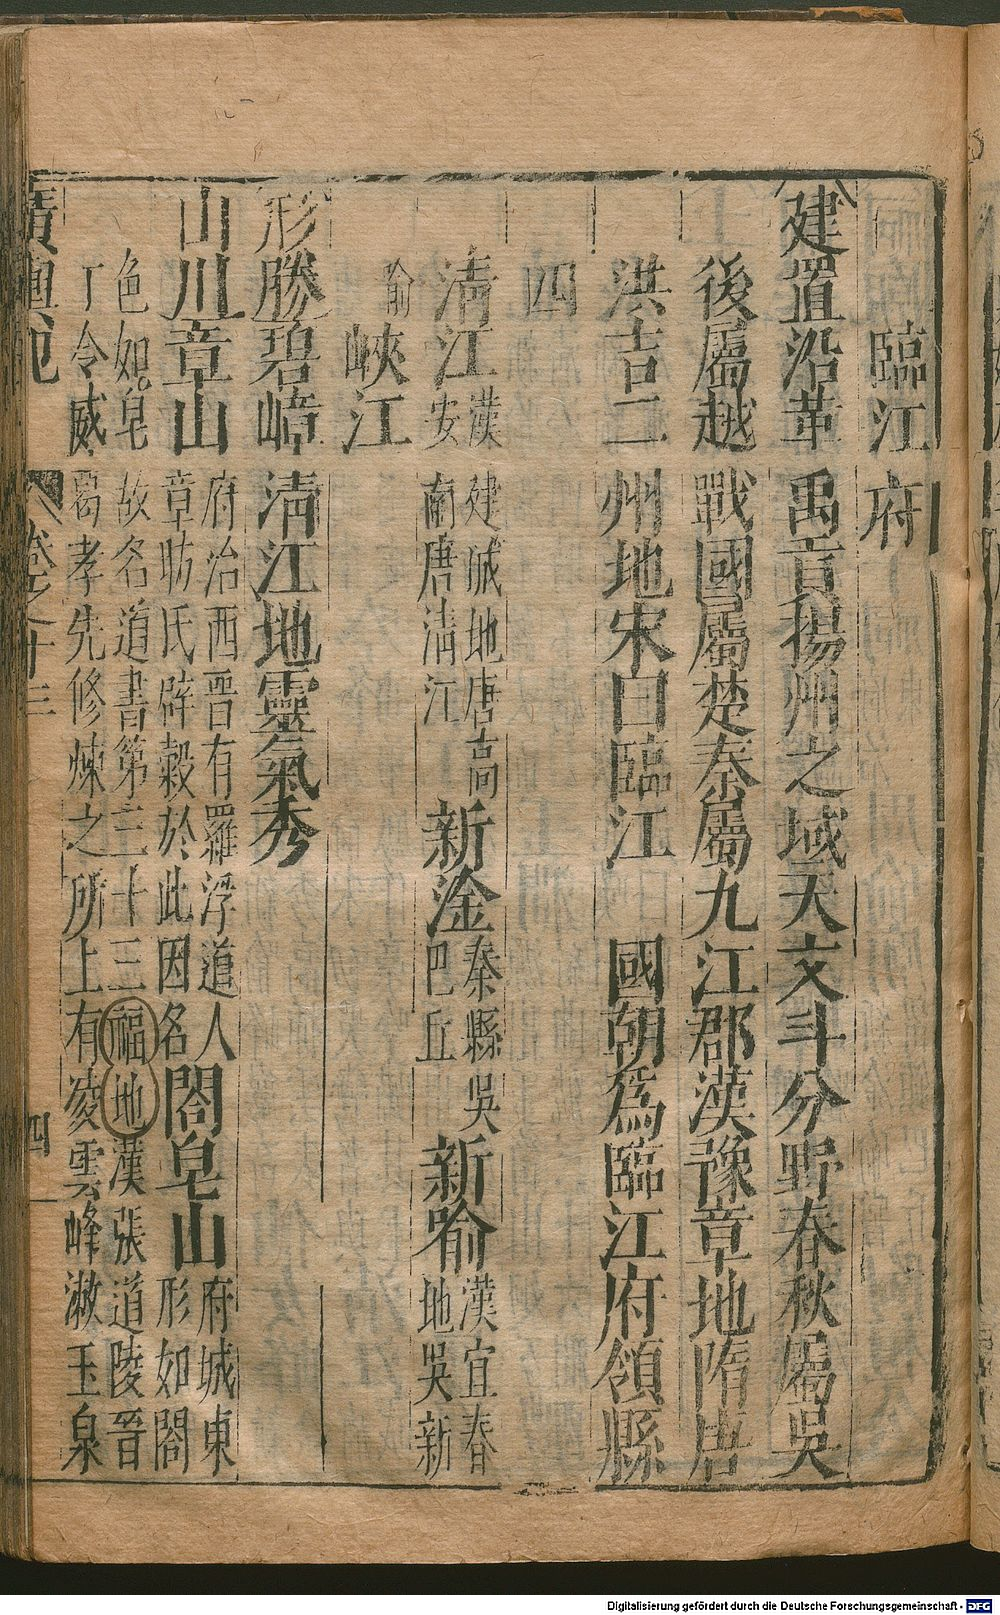 臨江府
建置沿革禹貢揚州之域天文斗分野春秋屬吳
後屬越戰國屬楚秦屬九江郡漢豫章地隋唐
洪吉二州地宋曰臨江國朝為臨江府領縣
四
清江漢建城地唐高安南唐清江新淦秦縣吳巴丘新喻漢宜春地吳新
喻峽江
形勝碧嶂清江地靈氣秀
山川章山府治西晉有羅浮道人章昉氏辟穀於此因名閤皂山府城東形如閤
色如皂故名道書第三十三福地漢張道陵晉
丁令威葛孝先修煉之所上有凌雲峰漱玉泉
卷之十三 四
Digitalisierung gefördert durch die Deutsche Forschungsgemeinschaft - DFG